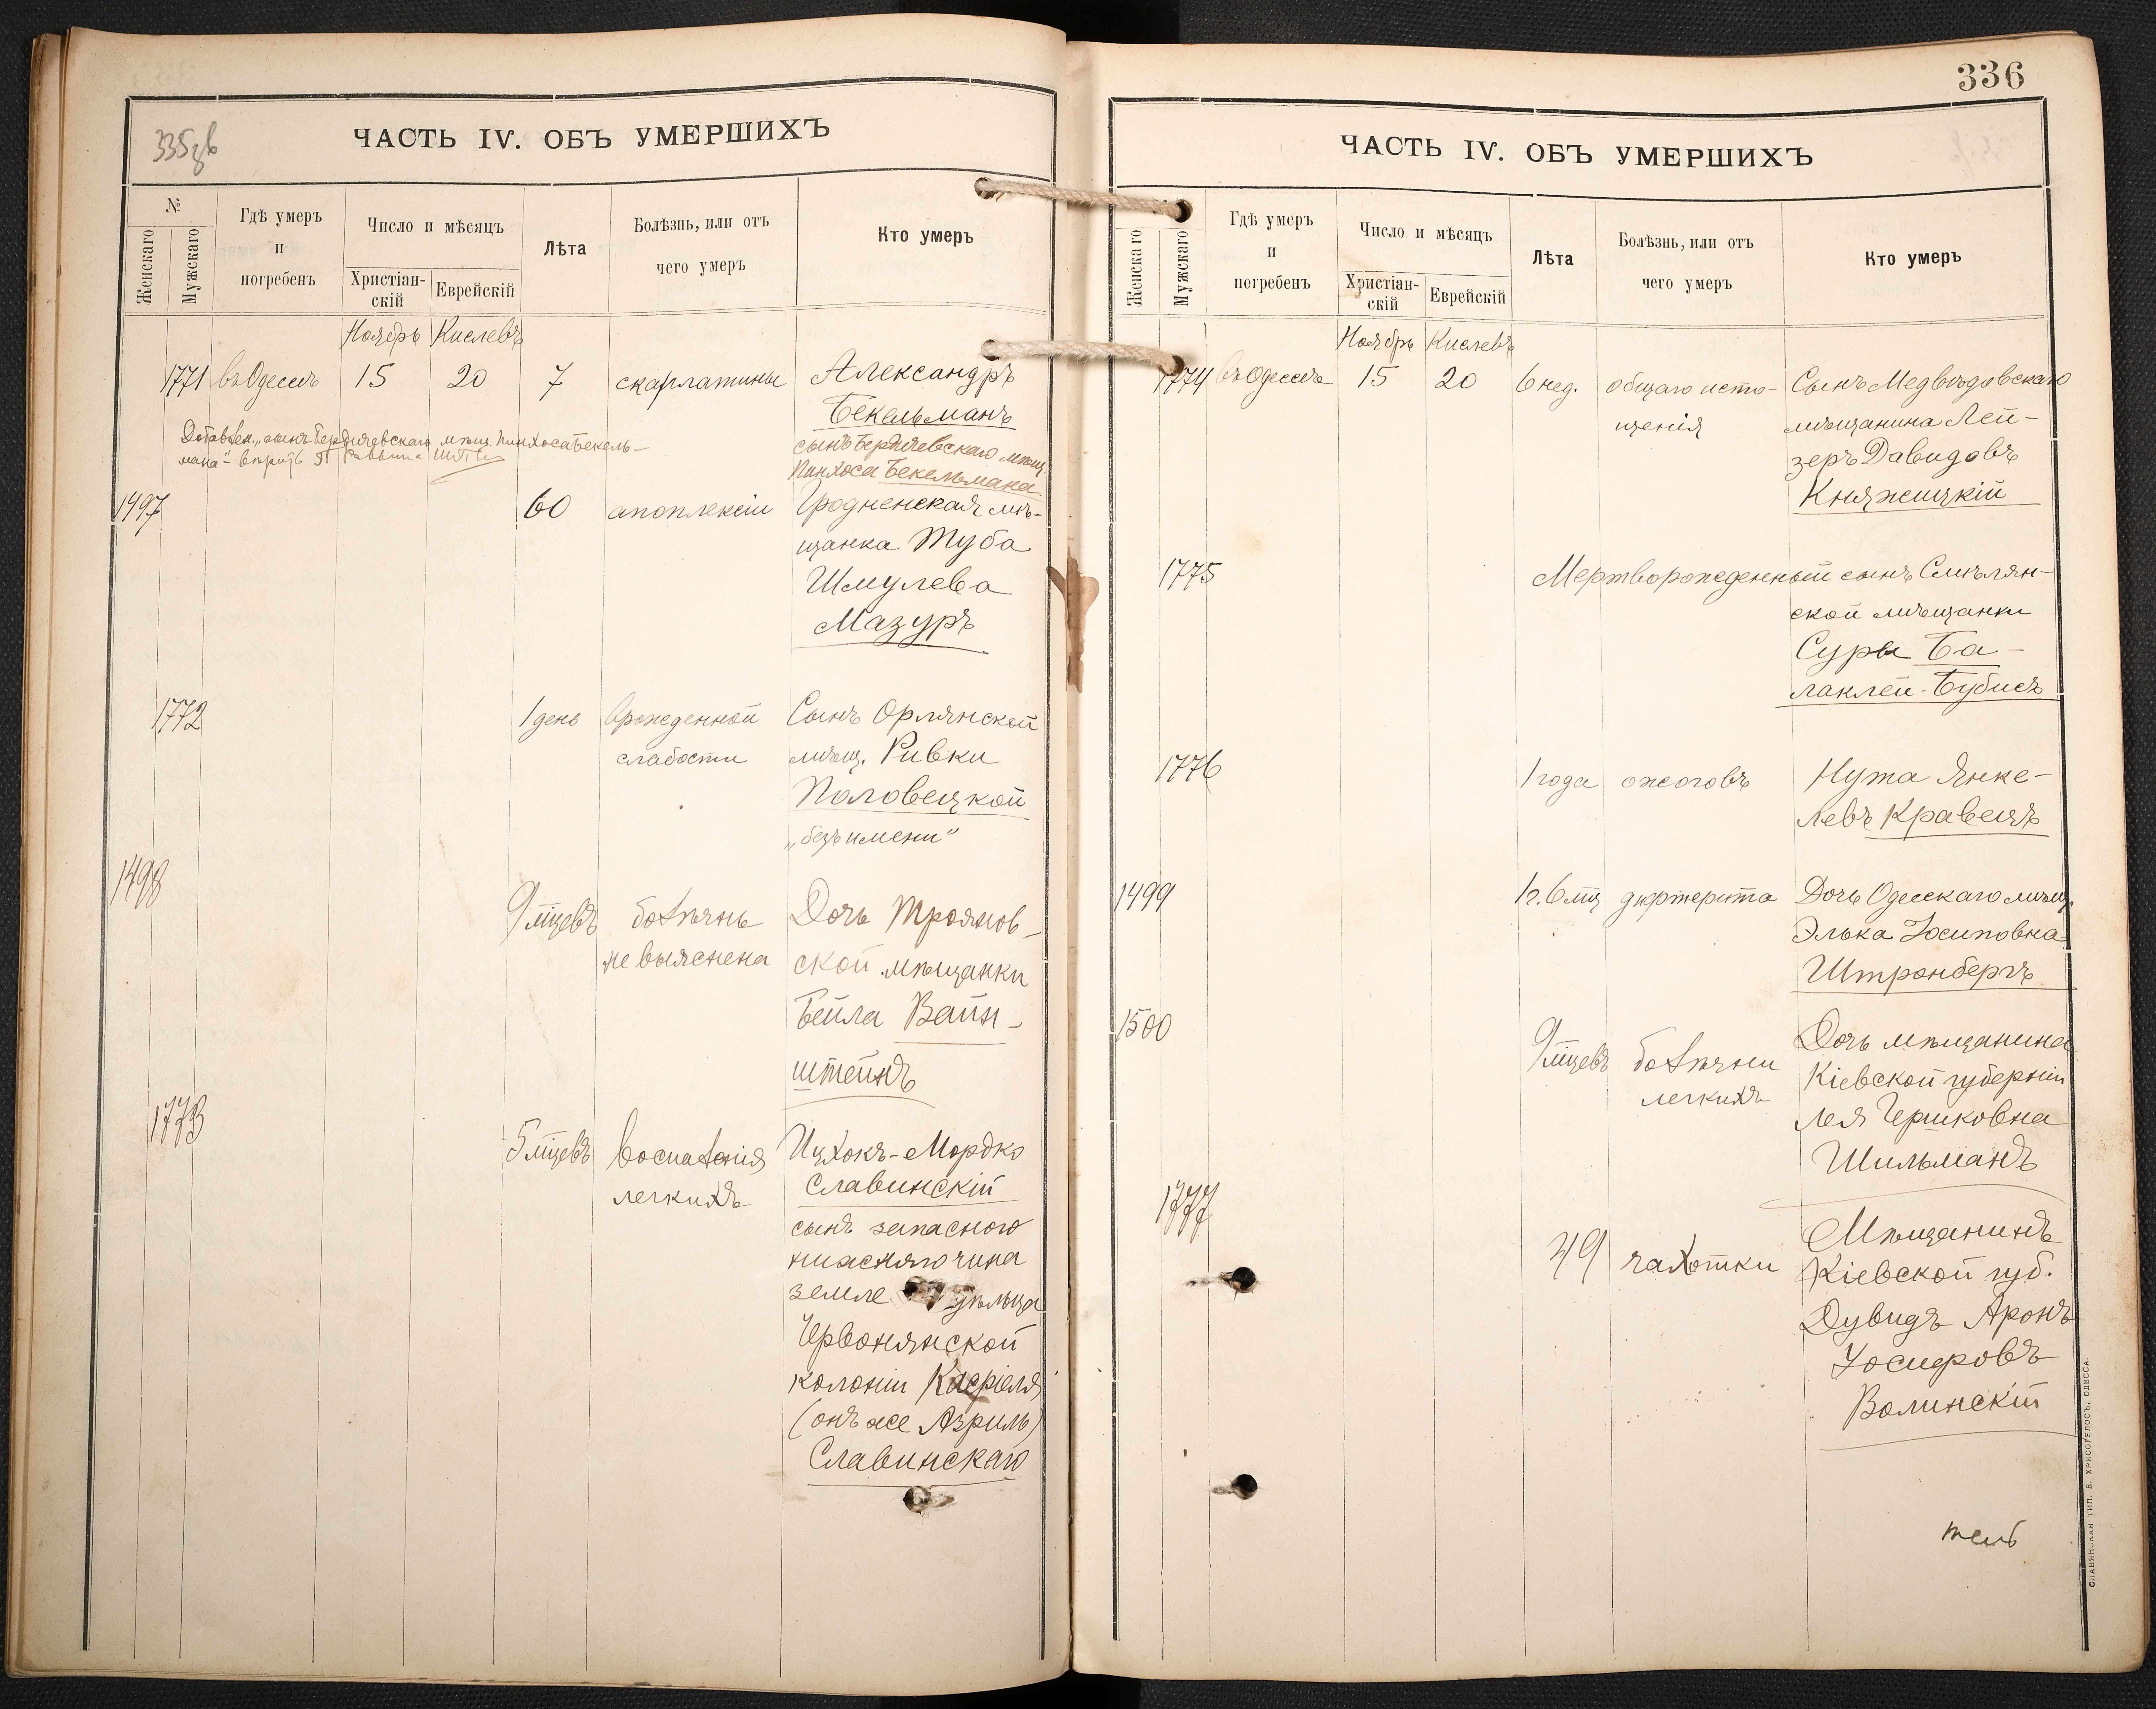 335 зв
ЧАСТЬ IV. ОБЪ УМЕРШИХЪ
№
Женскаго
Мужскаго
Гдѣ умеръ
и
погребенъ
Число и мѣсяцъ
Христіан-
скій
Еврейскій
Лѣта
Болѣзнь, или отъ
чего умеръ
Кто умеръ
Ноябрь Кислевъ
1771 въ Одессѣ 15 20 7 скарлатины Александръ
Бекельманъ
сынъ Бердичевскаго мѣщ.
Пинхоса Бекельмана
Добавлен. „сынъ Бердичевскаго мѣщ. Пинхоса Бекель-
мана“ вѣритъ Раввина
1497 60 апоплексіи Гродненская мѣ-
щанка Туба
Шмулева
Мазуръ
1772 1 день врожденной Сынъ Орлянской
слабости мѣщ. Ривки
Половецкой
„безъ имени“
1498 9 мцевъ болѣзнь Дочь Троянов-
не выяснена ской мѣщанки
Бейла Вайн-
штейнъ
1773 5 мцевъ воспаленія Ицхокъ-Мордко
легкихъ Славинскій
сынъ запасного
нижняго чина
земле дѣльца
Червонянской
колоніи
(онъ же Азриль)
Славинскаго
336
ЧАСТЬ IV. ОБЪ УМЕРШИХЪ
Женскаго
Мужскаго
Гдѣ умеръ
и
погребенъ
Число и мѣсяцъ
Христіан-
скій
Еврейскій
Лѣта
Болѣзнь, или отъ
чего умеръ
Кто умеръ
Ноябрь Кислевъ
1774 въ Одессѣ 15 20 6 нед. общаго исто- Сынъ Медвѣдовскаго
щенія мѣщанина Лей-
зеръ Давидовъ
Княжицкій
1775 Мертворожденный сынъ Смѣлян-
ской мѣщанки
Суры Ба-
лаклей-Бубисъ
1776 1 года ожоговъ Нута Янке-
левъ Кравецъ
1499 1 г. 6 мц дифтерита Дочь Одесскаго мѣщ.
Элька Іосиповна
Штронбергъ
1500 9 мцевъ болѣзни Дочь мѣщанина
легкихъ Кіевской губерніи
Лея Гершковна
Шильманъ
1777 49 чахотки Мѣщанинъ
Кіевской губ.
Дувидъ Аронъ-
Іосифовъ
Волинскій
тель
СЛАВЯНСКАЯ ТИП. Е. ХРИСОГЕЛОСЪ. ОДЕССА.